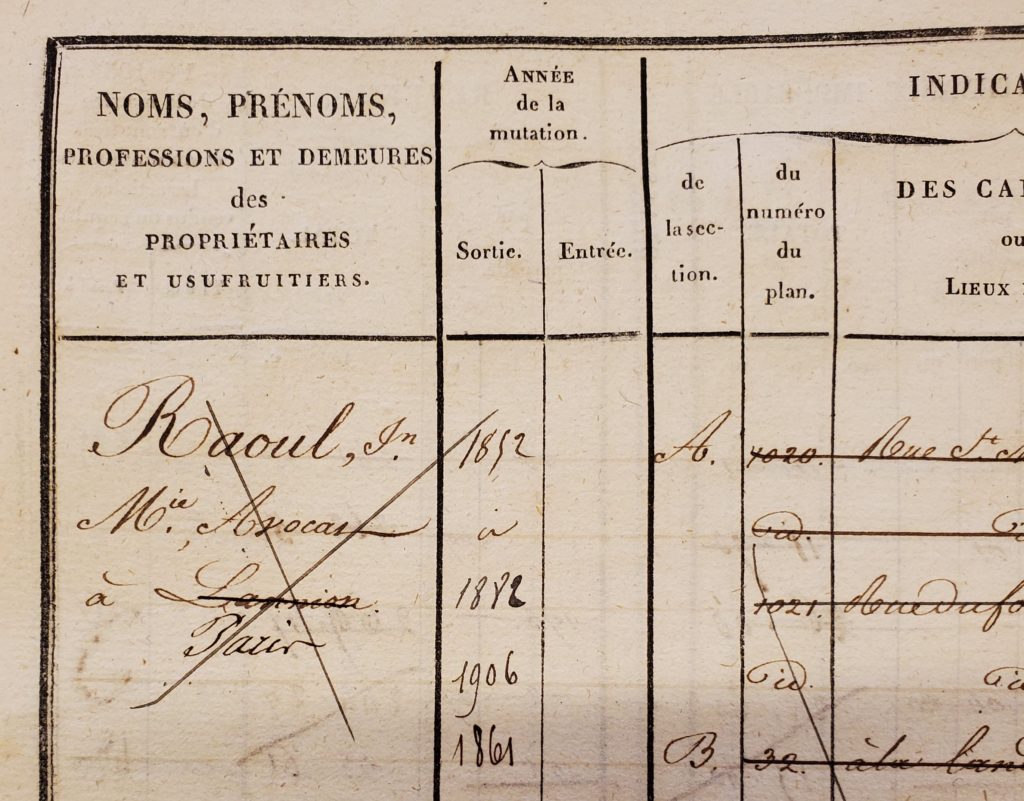 NOMS, PRÉNOMS,
PROFESSIONS ET DEMEURES
des
PROPRIÉTAIRES
ET USUFRUITIERS.
ANNÉE
de la
mutation.
Sortie. Entrée.
INDICA
de
la sec-
tion.
du
numéro
du
plan.
DES CA
ou
LIEUX
Raoul, Jn. 1852 A. 1020. Rue St.
Mie. Avocat id.
à Lannion. 1882 1021. Rue du fo
Paris
1906 id. id
1861 B. 32. à la land